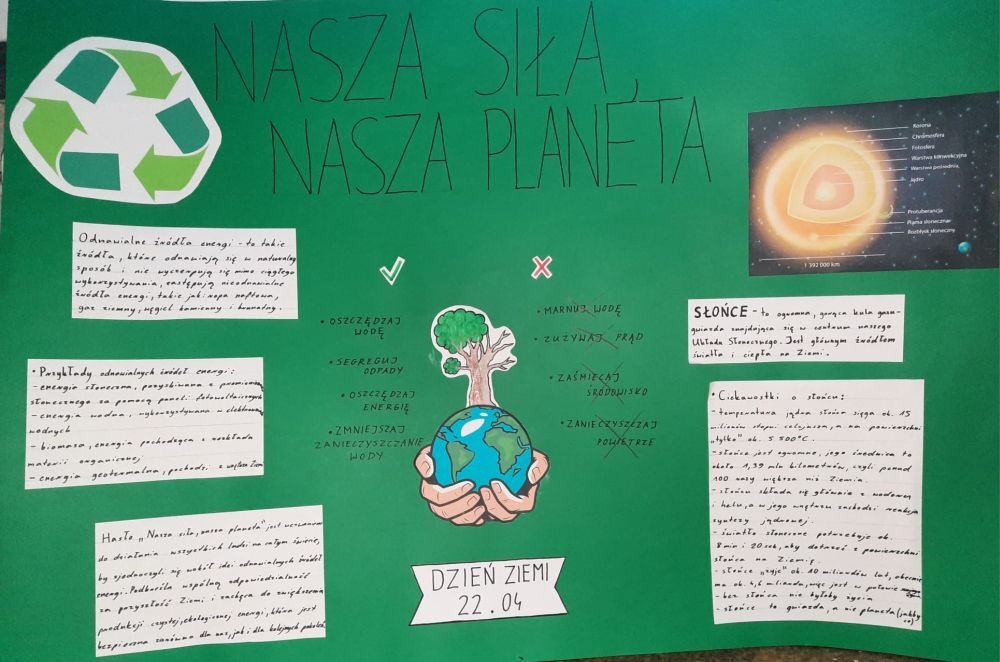 NASZA SIŁA,
NASZA PLANETA
Korona
Chromosfera
Fotosfera
Warstwa konwekcyjna
Warstwa pośrednia
Jądro
Protuberancja
Plama słoneczna
Rozbłysk słoneczny
1 392 000 km
Odnawialne źródła energi - to takie
źródła, które odnawiają się w naturalny
sposób i nie wyczerpują się mimo ciągłego
wykorzystywania, zastępują nieodnawialne
źródła energi, takie jak: ropa naftowa,
gaz ziemny, węgiel kamienny i brunatny.
• Przykłady odnawialnych źródeł energi:
- energia słoneczna, pozyskiwana z promieniow.
słonecznego za pomocą paneli fotowoltaicznych
- energia wodna, wykorzystywana w elektrowniach
wodnych
- biomasa, energia pochodząca z rozkładu
materii organicznej
- energia geotermalna, pochodzi z wnętrza Ziemi
Hasło „Nasza siła, nasza planeta" jest wezwaniem
do działania wszystkich ludzi na całym świecie,
by zjednoczyli się wokół idei odnawialnych źródeł
energi. Podkreśla wspólną odpowiedzialność
za przyszłość Ziemi i zachęca do zwiększenia
produkcji czystej, ekologicznej energi, która jest
bezpieczna zarówno dla nas, jak i dla kolejnych pokoleń.
• OSZCZĘDZAJ
WODĘ
• SEGREGUJ
ODPADY
• OSZCZĘDZAJ
ENERGIĘ
• ZMNIEJSZAJ
ZANIECZYSZCZANIE
WODY
• MARNUJ WODĘ
• ZUŻYWAJ PRĄD
• ZAŚMIECAJ
ŚRODOWISKO
• ZANIECZYSZCZAJ
POWIETRZE
DZIEŃ ZIEMI
22.04
SŁOŃCE - to ogromna, gorąca kula gazu -
gwiazda znajdująca się w centrum naszego
Układu Słonecznego. Jest głównym źródłem
światła i ciepła na Ziemi.
• Ciekawostki o słońcu:
- temperatura jądra słońca sięga ok. 15
milionów stopni celcjusza, a na powierzchni
„tylko" ok. 5 500°C.
- słońce jest ogromne, jego średnica to
około 1,39 mln kilometrów, czyli ponad
100 razy większa niż Ziemia.
- słońce składa się głównie z wodoru
i helu, a w jego wnętrzu zachodzi reakcja
syntezy jądrowej.
- światło słoneczne potrzebuje ok.
8 min i 20 sek, aby dotrzeć z powierzchni
słońca na Ziemię.
- słońce „żyje" ok. 10 miliardów lat, obecnie
ma ok. 4,6 miliarda, więc jest w połowie
- bez słońca nie byłoby życia
- słońce to gwiazda, a nie planeta (jakby
co)